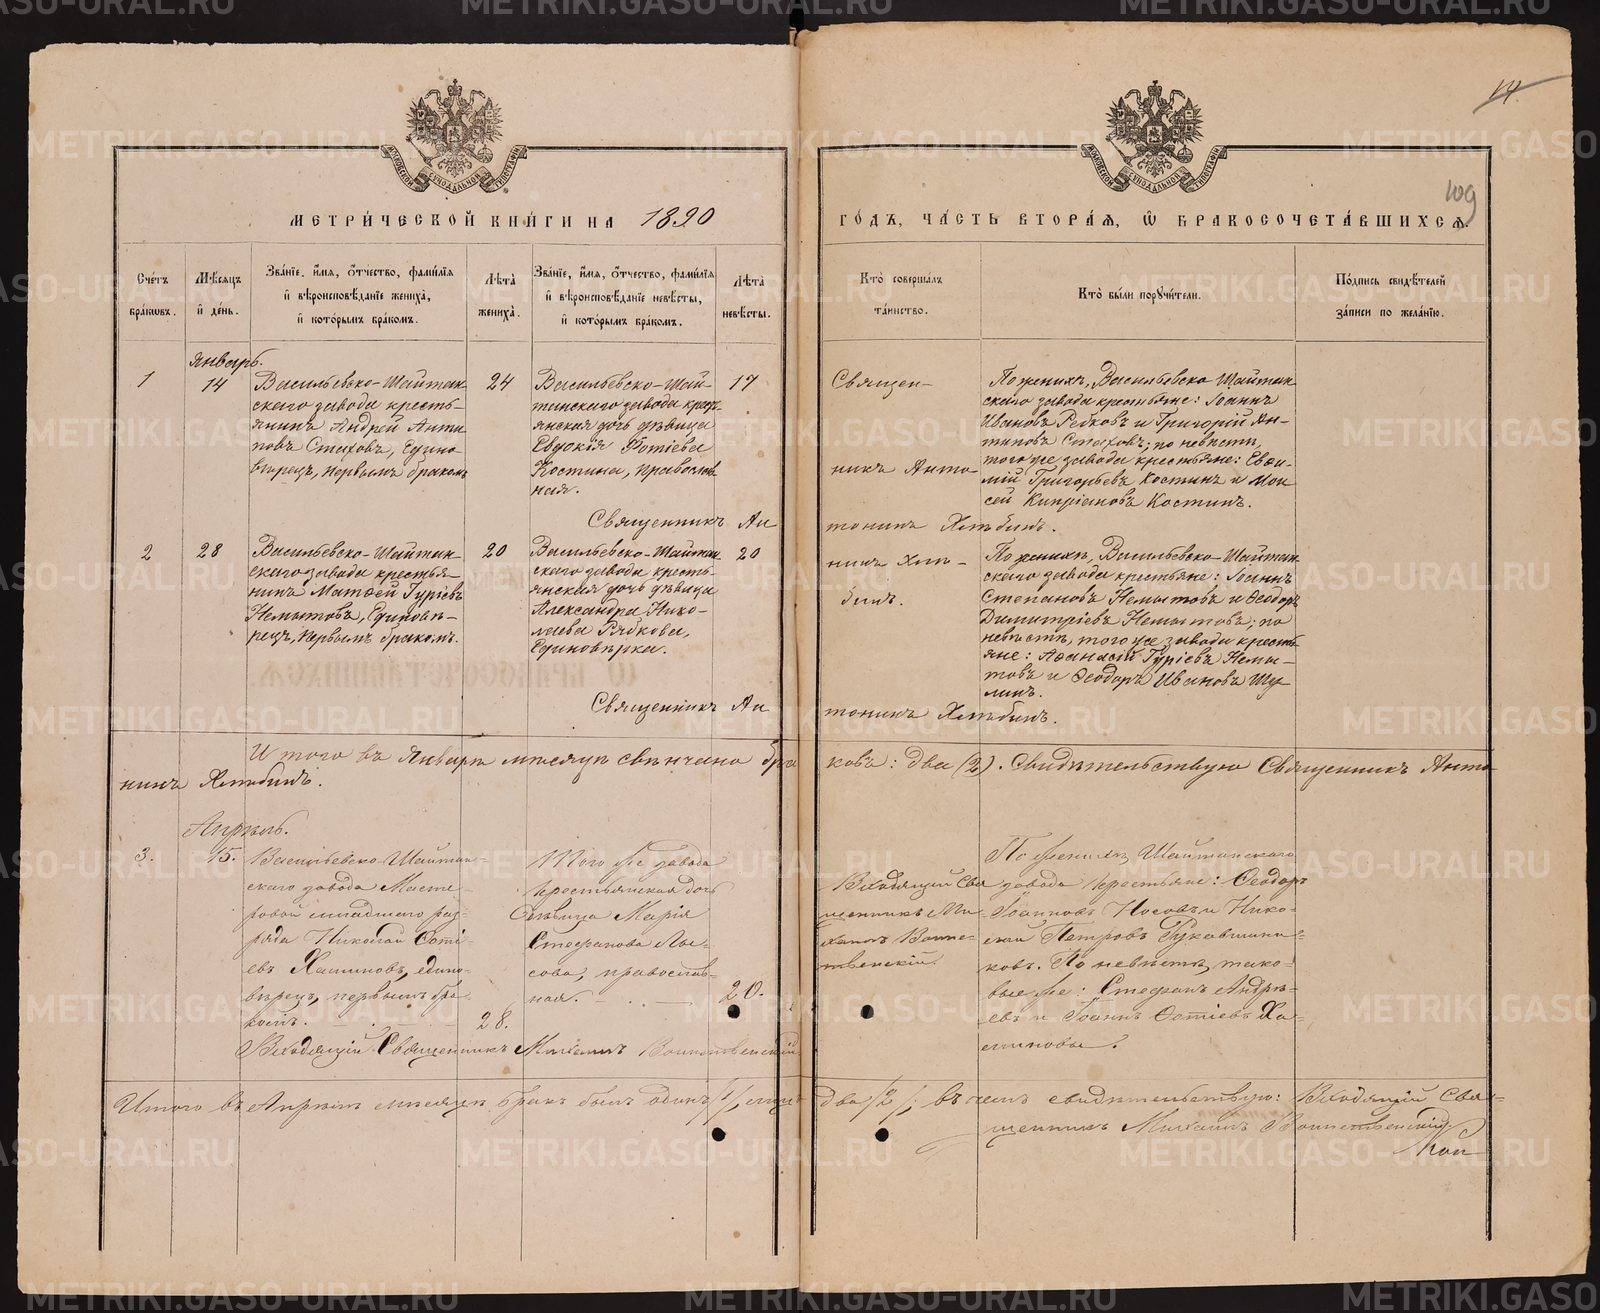 МЕТРИ́ЧЕСКОЙ КНИ́ГИ НА 1890
ГО́ДЪ, ЧА́СТЬ ВТОРА́Я, Ѽ БРАКОСОЧЕТА́ВШИХСѦ.
14.
109
МОСКОВСКОЙ СѴНОДАЛЬНОЙ ТИПОГРАФІИ
МОСКОВСКОЙ СѴНОДАЛЬНОЙ ТИПОГРАФІИ
Сче́тъ
бра́кѡвъ.
Мѣ́сѧцъ
и҆ де́нь.
Зва́нїе, и҆́мѧ, ѻ҆́тчество, фами́лїѧ
и҆ вѣроисповѣ́данїе жениха̀,
и҆ кото́рымъ бра́комъ.
Лѣ́та
жениха̀.
Зва́нїе, и҆́мѧ, ѻ҆́тчество, фами́лїѧ
и҆ вѣроисповѣ́данїе невѣ́сты,
и҆ кото́рымъ бра́комъ.
Лѣ́та
невѣ́сты.
Кто̀ соверша́лъ
та́инство.
Кто̀ бы́ли порꙋчи́тели.
По́дпись свидѣ́телей
за́писи по жела́нїю.
Январь.
1
14
Васильевско-Шайтан
скаго завода кресть-
янинъ Андрей Анти
повъ Стаховъ, Едино
верецъ, первымъ бракомъ
24
Васильевско-Шай-
танскаго завода крест
янская дочь дѣвица
Евдокія Фотіева
Костина, православ
ная.
17
Священ-
никъ Анто-
нинъ Хлѣ-
бинъ.
По женихѣ, Васильевско Шайтан
скаго завода крестьяне: Іоаннъ
Ивановъ Ребковъ и Григорій Ан-
типовъ Стаховъ; по невѣстѣ,
того же завода крестьяне: Евѳи-
мій Григорьевъ Костинъ и Мои
сей Кипріановъ Костинъ.
Священникъ Ан
тонинъ Хлѣбинъ.
2
28
Васильевско-Шайтан
скаго завода крестья-
нинъ Матѳей Гуріевъ
Немытовъ, Единовѣ-
рецъ, первымъ бракомъ.
20
Васильевско-Шайтан
скаго завода кресть-
янская дочь дѣвица
Александра Нико-
лаева Рябкова,
Единовѣрка.
20
По женихѣ, Васильевско-Шайтан
скаго завода крестьяне: Іоаннъ
Степановъ Немытовъ и Ѳеодоръ
Димитріевъ Немытовъ; по
невѣстѣ, того же завода кресть
яне: Аѳанасій Гуріевъ Немы-
товъ и Ѳеодоръ Ивановъ Шу
линъ.
Священникъ Ан
тонинъ Хлѣбинъ.
Итого въ Январѣ мѣсяцѣ свѣнчано бра
ковъ: два (2). Свидѣтельствую Священникъ Анто-
нинъ Хлѣбинъ.
Апрѣль.
3.
15.
Васильевско-Шайтан-
скаго завода Масте-
ровой младшаго раз-
ряда Николай Ѳоті-
евъ Халиновъ, едино-
вѣрецъ, первымъ бра-
комъ.
28.
Того же завода
крестьянская дочь
дѣвица Марія
Стефанова Лы-
сова, православ-
ная.
20.
В.ходящій Свя
щенникъ Ми-
хаилъ Воинс-
твенскій.
По женихѣ, Шайтанскаго
завода крестьяне: Ѳеодоръ
Іоанновъ Носовъ и Нико-
лай Петровъ Рукавишни-
ковъ. По невѣстѣ, тако-
вые же: Стефанъ Андрѣ-
евъ и Іоаннъ Ѳотіевъ Ха-
линовы.
В.ходящій Священникъ Михаилъ Воинственскій
Итого въ Апрѣлѣ мѣсяцѣ бракъ былъ одинъ /1/, лицъ
два /2/; въ чемъ свидѣтельствую: В.ходящій Свя-
щенникъ Михаилъ Воинственскій.
METRIKI.GASO-URAL.RU